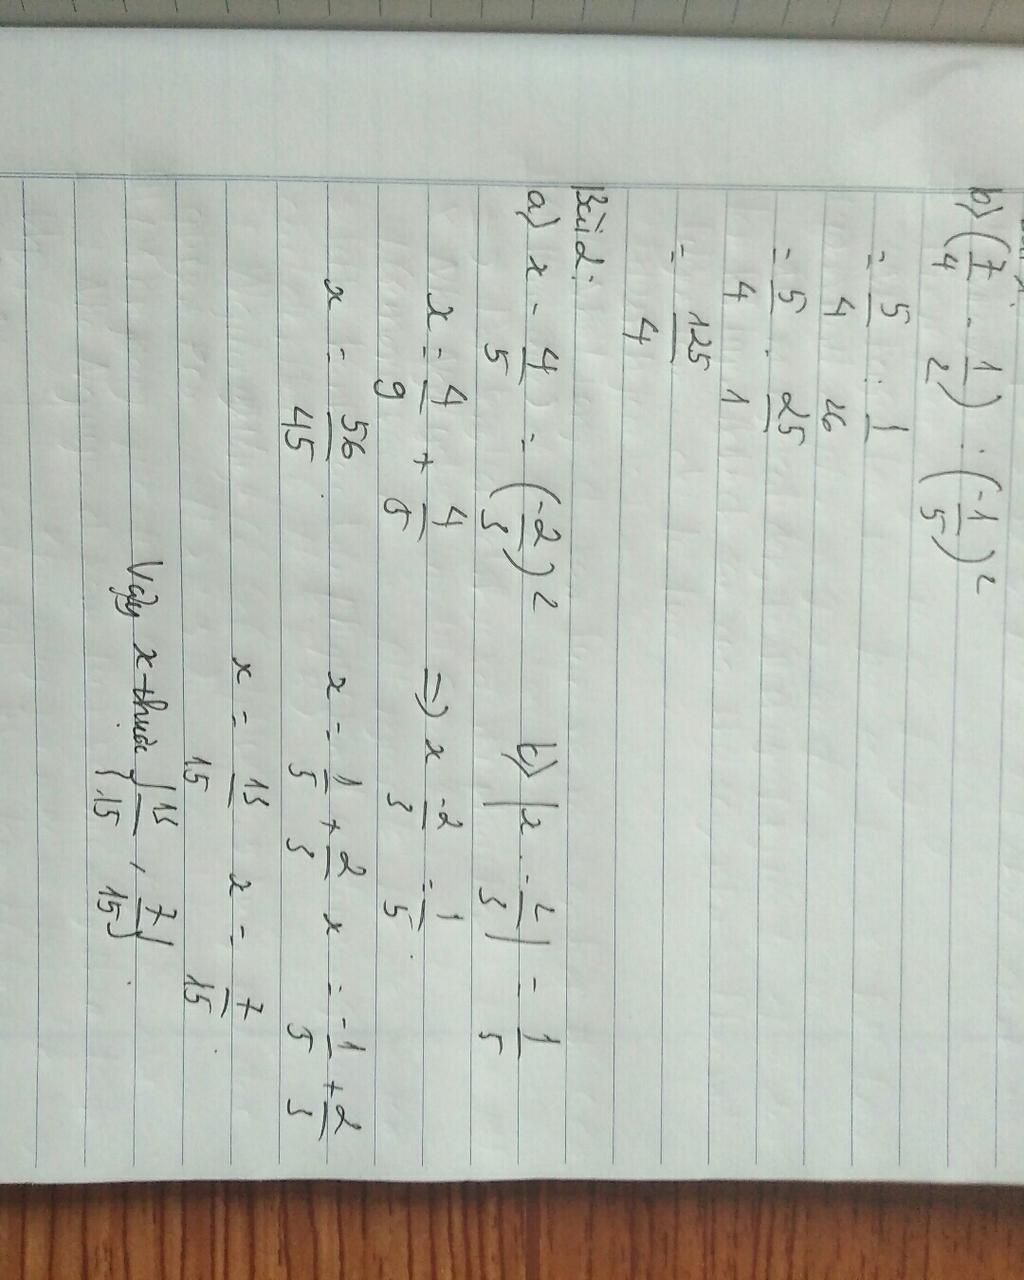 b) (7/4 - 1/2) : (-1/5)²
= 5/4 : 1/26
= 5/4 . 25/1
= 125/4
Bài 2:
a) x - 4/5 = (-2/3)²
x = 4/9 + 4/5
x = 56/45
b) |x - 2/3| = 1/5
=> x - 2/3 = 1/5
x = 1/5 + 2/3 x = -1/5 + 2/3
x = 13/15 x = 7/15
Vậy x thuộc {13/15, 7/15}.